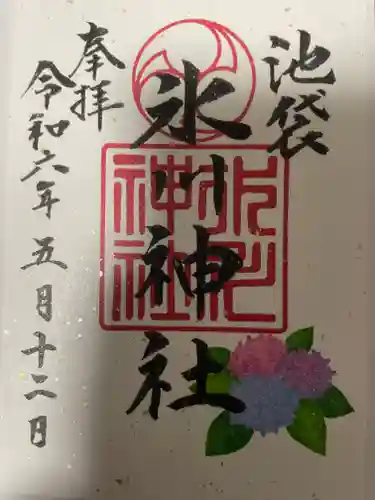 池袋
氷川神社
奉拝
令和六年五月十二日
氷川
神社